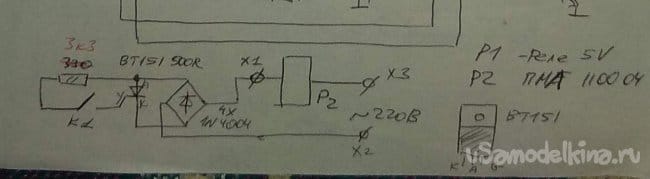 3к3
330
BT151 500R
X1
X3
P2
4x
1N4004
K1
~220В
X2
P1 - Реле 5V
P2 ПМЛ 110004
BT151
К А G
uSamodelkina.ru